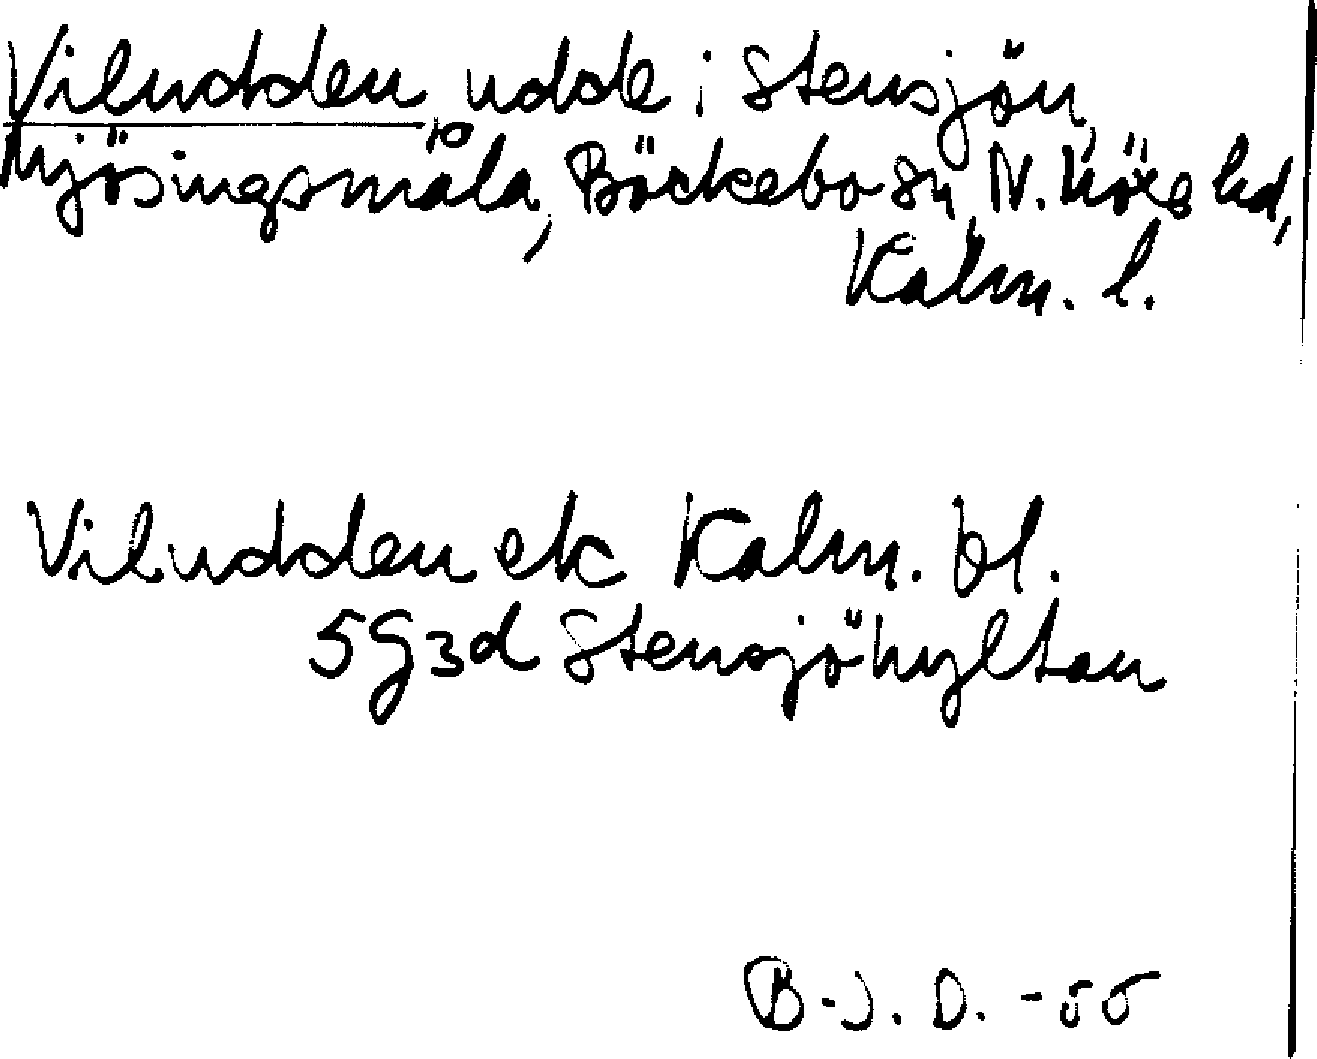 Viludden, udde i Stensjön,
Mjösingsmåla, Bäckebo sn, N. Möre hd,
Kalm. l.
Viludden ek Kalm. bl.
5G3d Stensjöhyltan
B-J. D. -55